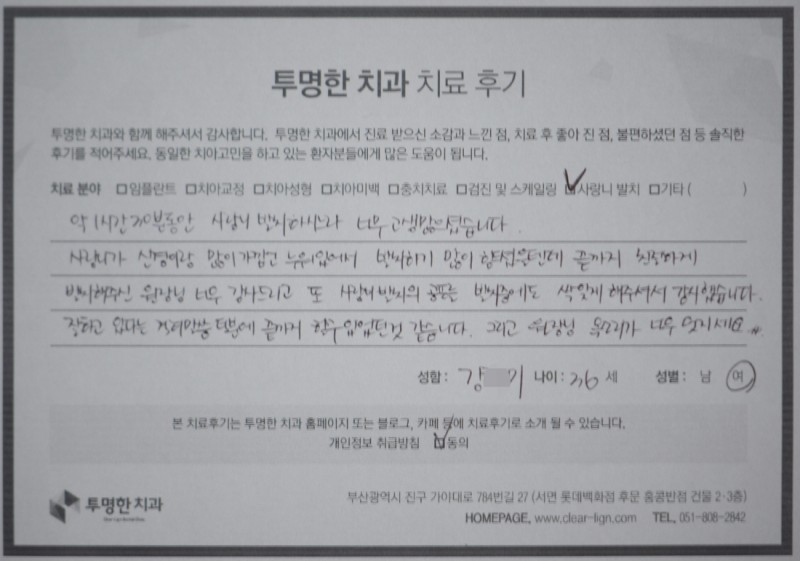 투명한 치과 치료 후기
투명한 치과와 함께 해주셔서 감사합니다. 투명한 치과에서 진료 받으신 소감과 느낀 점, 치료 후 좋아 진 점, 불편하셨던 점 등 솔직한
후기를 적어주세요. 동일한 치아고민을 하고 있는 환자분들에게 많은 도움이 됩니다.
치료 분야 □임플란트 □치아교정 □치아성형 □치아미백 □충치치료 □검진 및 스케일링 ☑사랑니 발치 □기타 ( )
약 1시간 20분동안 사랑니 발치하시느라 너무 고생많으셨습니다.
사랑니가 신경이랑 많이가깝고 누워있어서 발치하기 많이 힘드셨을텐데 끝까지 친절하게
발치해주신 원장님 너무 감사드리고 또 사랑니 발치의 공포를 발치중에도 싹잊게 해주셔서 감사했습니다.
잘하고 있다는 격려말씀 덕분에 끝까지 할수있었던것 같습니다. 그리고 원장님 목소리가 너무 멋지세요
성함 : 강 이 나이 : 26 세 성별 : 남 여
본 치료후기는 투명한 치과 홈페이지 또는 블로그, 카페 등에 치료후기로 소개 될 수 있습니다.
개인정보 취급방침 ☑동의
투명한 치과
부산광역시 진구 가야대로 784번길 27 (서면 롯데백화점 후문 홍콩반점 건물 2·3층)
HOMEPAGE. www.clear-lign.com TEL. 051-808-2842